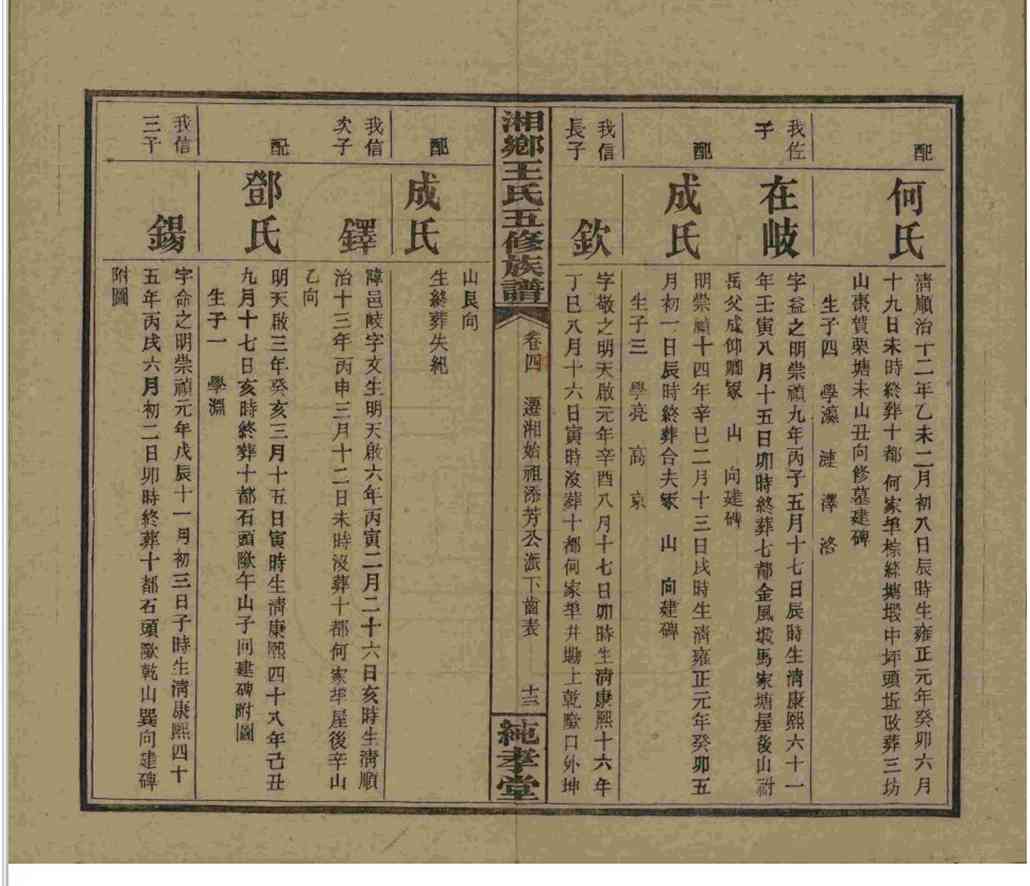 配
何氏
清順治十二年乙未二月初八日辰時生雍正元年癸卯六月
十九日未時終葬十都何家埠棕絲塘塅中坪頭坵改葬三坊
山棗賃栗塘未山丑向修墓建碑
生子四 學瀛 漣 澤 洛
我佐
子
在岐
字益之明崇禎九年丙子五月十七日辰時生清康熙六十一
年壬寅八月十五日卯時終葬七都金風塅馬家塘屋後山祔
岳父成仰卿冢 山 向建碑
配
成氏
明崇禎十四年辛巳二月十三日戌時生清雍正元年癸卯五
月初一日辰時終葬合夫冢 山 向建碑
生子三 學亮 高 京
我信
長子
欽
字敬之明天啟元年辛酉八月十七日卯時生清康熙十六年
丁巳八月十六日寅時沒葬十都何家埠井坳上乾壂口外坤
湘鄉王氏五修族譜
卷四 遷湘始祖添芳公派下齒表 十三
純孝堂
山艮向
配
成氏
生終葬失紀
我信
次子
鐸
諱邑岐字文生明天啟六年丙寅二月二十六日亥時生清順
治十三年丙申三月十二日未時沒葬十都何家埠屋後辛山
乙向
配
鄧氏
明天啟三年癸亥三月十五日寅時生清康熙四十八年己丑
九月十七日亥時終葬十都石頭歐午山子向建碑附圖
生子一 學淵
我信
三子
錫
字命之明崇禎元年戊辰十一月初三日子時生清康熙四十
五年丙戌六月初二日卯時終葬十都石頭歐乾山巽向建碑
附圖